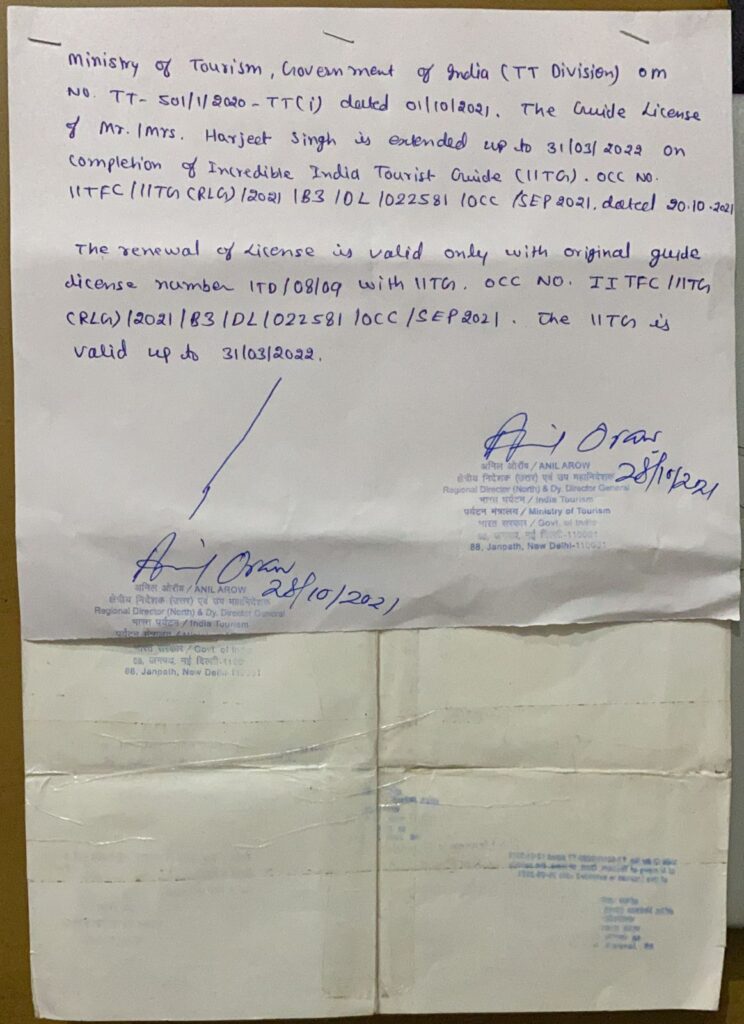 Ministry of Tourism, Government of India (TT Division) OM
NO. TT- 501/1/2020 - TT(i) dated 01/10/2021. The Guide License
of Mr./Mrs. Harjeet Singh is extended up to 31/03/2022 on
completion of Incredible India Tourist Guide (IITG). OCC NO.
IITFC/IITG (RLG)/2021/B3/DL/022581/OCC/SEP2021. dated 20.10.2021
The renewal of License is valid only with original guide
license number ITD/08/09 with IITG. OCC NO. IITFC/IITG
(RLG)/2021/B3/DL/022581/OCC/SEP2021. The IITG is
valid up to 31/03/2022.
Anil Oraw
28/10/2021
अनिल ओराँव / ANIL AROW
क्षेत्रीय निदेशक (उत्तर) एवं उप महानिदेशक
Regional Director (North) & Dy. Director General
भारत पर्यटन / India Tourism
पर्यटन मंत्रालय / Ministry of Tourism
भारत सरकार / Govt. of India
88, जनपथ, नई दिल्ली-110001
88, Janpath, New Delhi-110001
Anil Oraw
28/10/2021
अनिल ओराँव / ANIL AROW
क्षेत्रीय निदेशक (उत्तर) एवं उप महानिदेशक
Regional Director (North) & Dy. Director General
भारत पर्यटन / India Tourism
पर्यटन मंत्रालय
भारत सरकार / Govt. of India
88, जनपथ, नई दिल्ली-110001
88, Janpath, New Delhi-110001